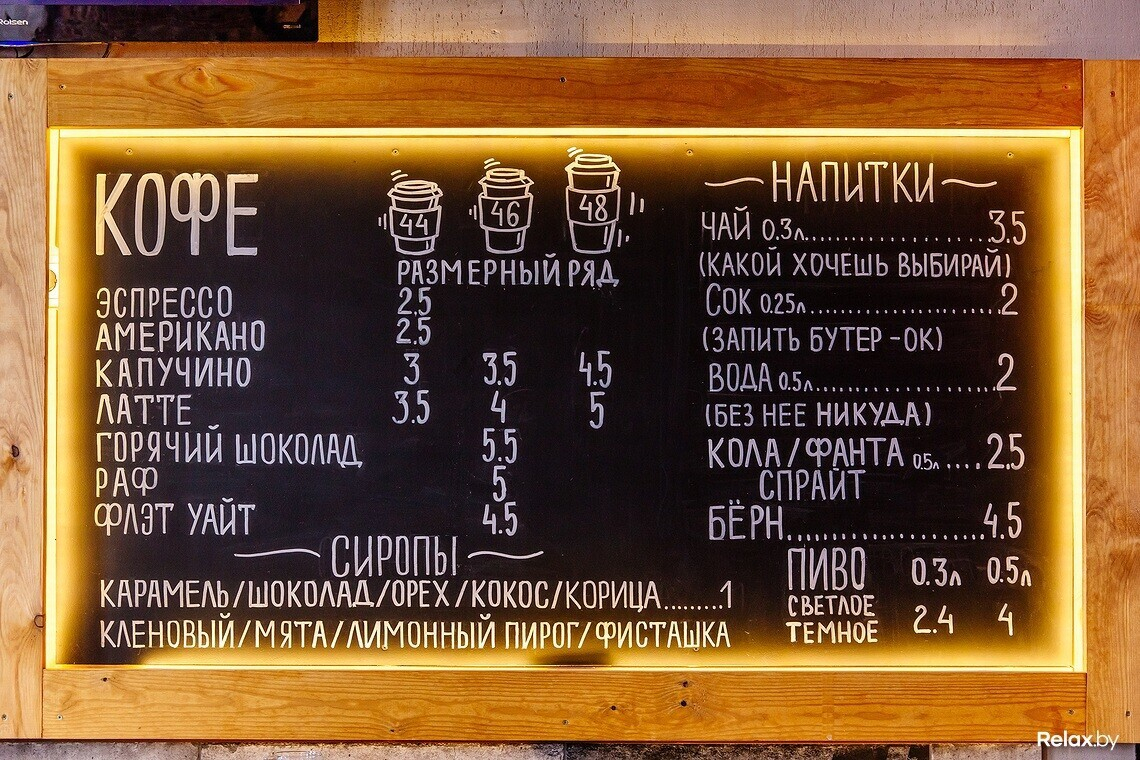 Rolsen
КОФЕ
44 46 48
РАЗМЕРНЫЙ РЯД
ЭСПРЕССО 2.5
АМЕРИКАНО 2.5
КАПУЧИНО 3 3.5 4.5
ЛАТТЕ 3.5 4 5
ГОРЯЧИЙ ШОКОЛАД 5.5
РАФ 5
ФЛЭТ УАЙТ 4.5
СИРОПЫ
КАРАМЕЛЬ/ШОКОЛАД/ОРЕХ/КОКОС/КОРИЦА.........1
КЛЕНОВЫЙ/МЯТА/ЛИМОННЫЙ ПИРОГ/ФИСТАШКА
НАПИТКИ
ЧАЙ 0.3л......................3.5
(КАКОЙ ХОЧЕШЬ ВЫБИРАЙ)
СОК 0.25л.......................2
(ЗАПИТЬ БУТЕР - ОК)
ВОДА 0.5л.....................2
(БЕЗ НЕЕ НИКУДА)
КОЛА/ФАНТА 0.5л....2.5
СПРАЙТ
БЁРН........................4.5
ПИВО 0.3л 0.5л
СВЕТЛОЕ
ТЕМНОЕ 2.4 4
Relax.by